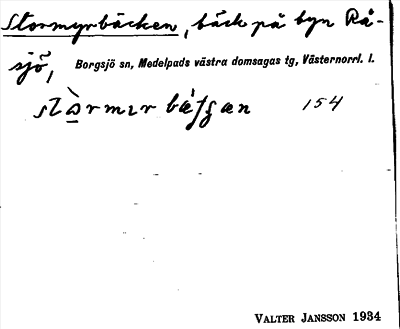 Stormyrbäcken, bäck på byn Rå-
sjö, Borgsjö sn, Medelpads västra domsagas tg, Västernorrl. l.
154
VALTER JANSSON 1934